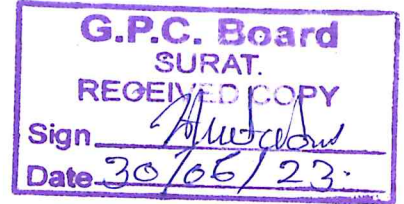 G.P.C. Board
SURAT.
RECEIVED COPY
Sign
Date 30/06/23.